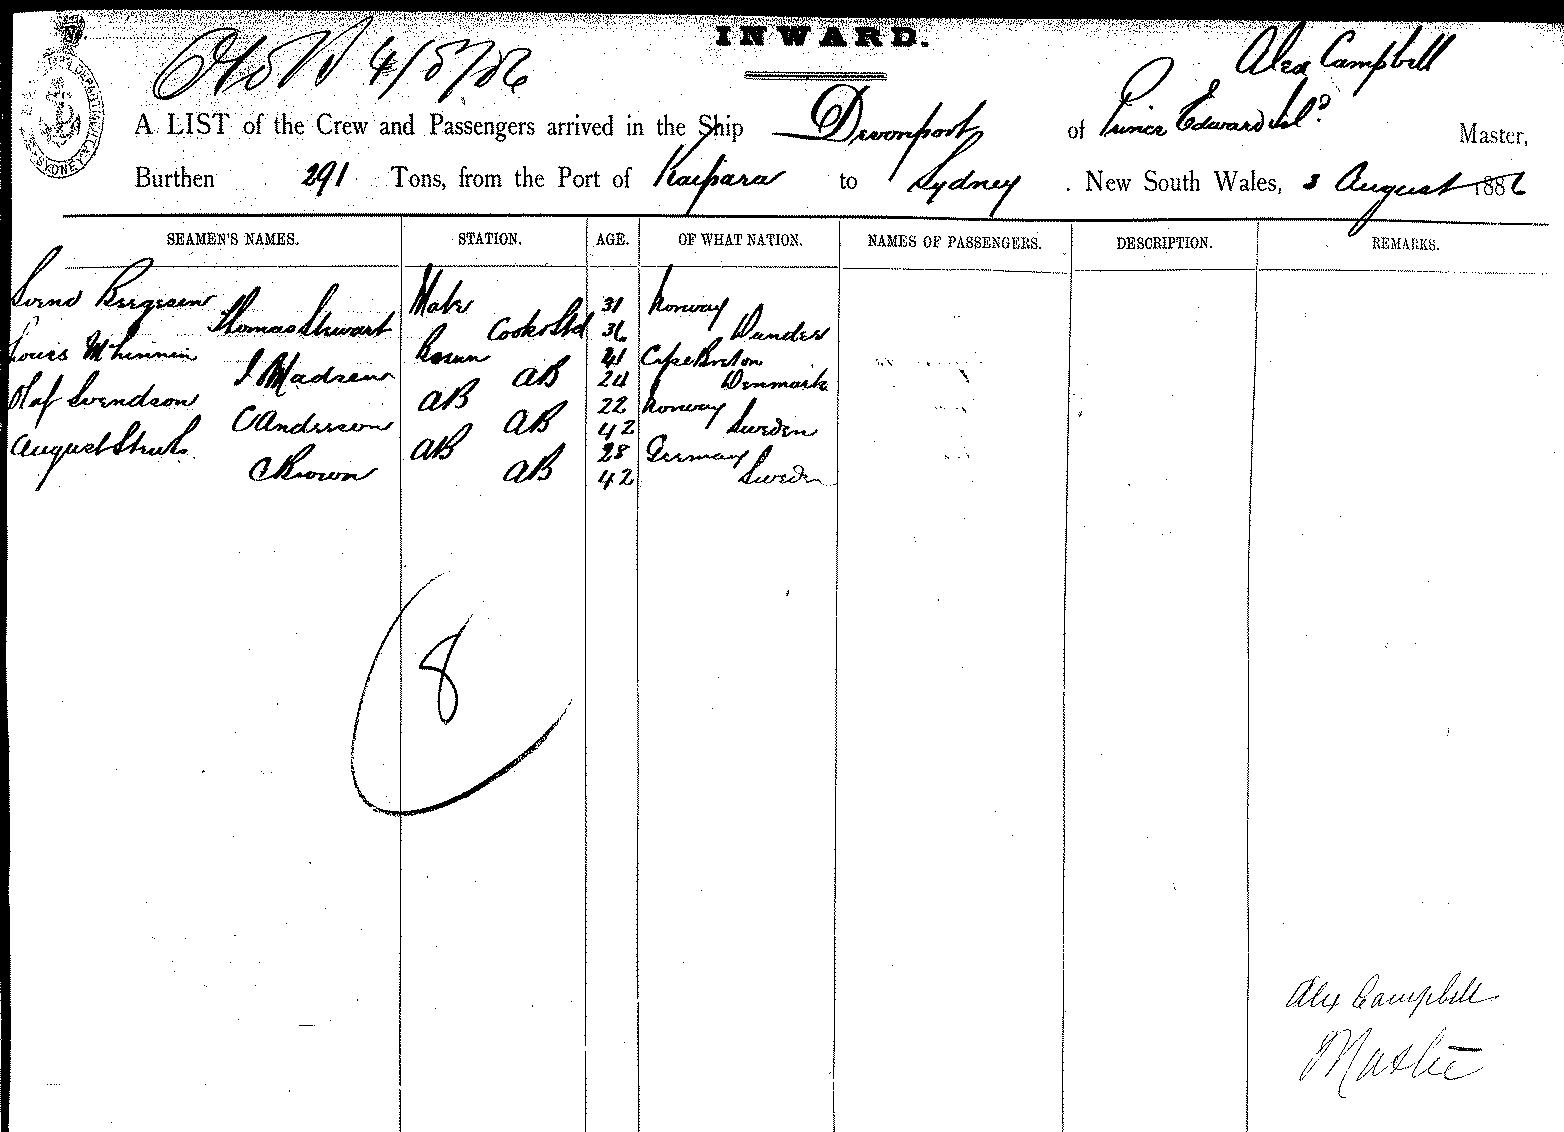 INWARD.
4/8/86
Alex Campbell
A LIST of the Crew and Passengers arrived in the Ship Devonport of Prince Edward Isld Master,
Burthen 291 Tons, from the Port of Kaipara to Sydney . New South Wales, 3 August 1886
SEAMEN'S NAMES. STATION. AGE. OF WHAT NATION. NAMES OF PASSENGERS. DESCRIPTION. REMARKS.
Svend Bergesen Mate 31 Norway
Thomas Stewart Cook & Std 36 Dundee
Louis Bosun 41 Cape Breton
J Madsen AB 24 Denmark
Olaf Svendson AB 22 Norway
C Anderson AB 42 Sweden
August AB 28 Germany
C Brown AB 42 Sweden
8
Alex Campbell
Master